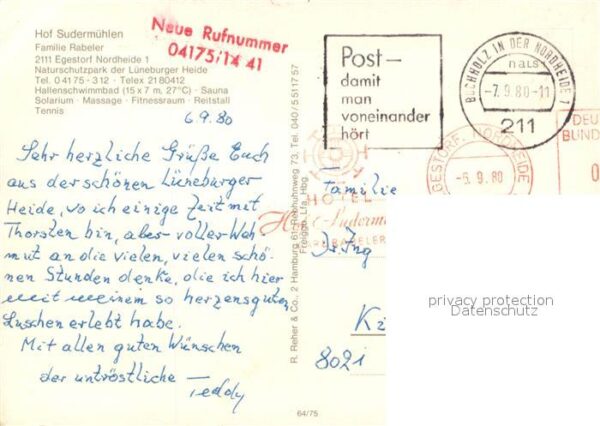 Hof Sudermühlen
Familie Rabeler
2111 Egestorf Nordheide 1
Naturschutzpark der Lüneburger Heide
Tel. 0 41 75 - 312 · Telex 2180412
Hallenschwimmbad (15 x 7 m. 27°C) · Sauna
Solarium · Massage · Fitnessraum · Reitstall
Tennis
Neue Rufnummer
04175/14 41
6.9.80
Sehr herzliche Grüße Euch
aus der schönen Lüneburger
Heide, wo ich einige Zeit mit
Thorsten bin, aber voller Weh-
mut an die vielen, vielen schö-
nen Stunden denke, die ich hier
mit meinem so herzensguten
Luschen erlebt habe.
Mit allen guten Wünschen
der untröstliche —
Teddy
R. Reher & Co., 2 Hamburg 61, Rebhuhnweg 73, Tel. 040/5 51 17 57
Freigg. Lfa. Hbg.
64/75
Post –
damit
man
voneinander
hört
BUCHHOLZ IN DER NORDHEIDE 1
-7.9.80-11
211
EGESTORF, NORDHEIDE
-5.9.80
DEU
BUND
0
HOTEL
Familie
Dr. Ing
8021
privacy protection
Datenschutz